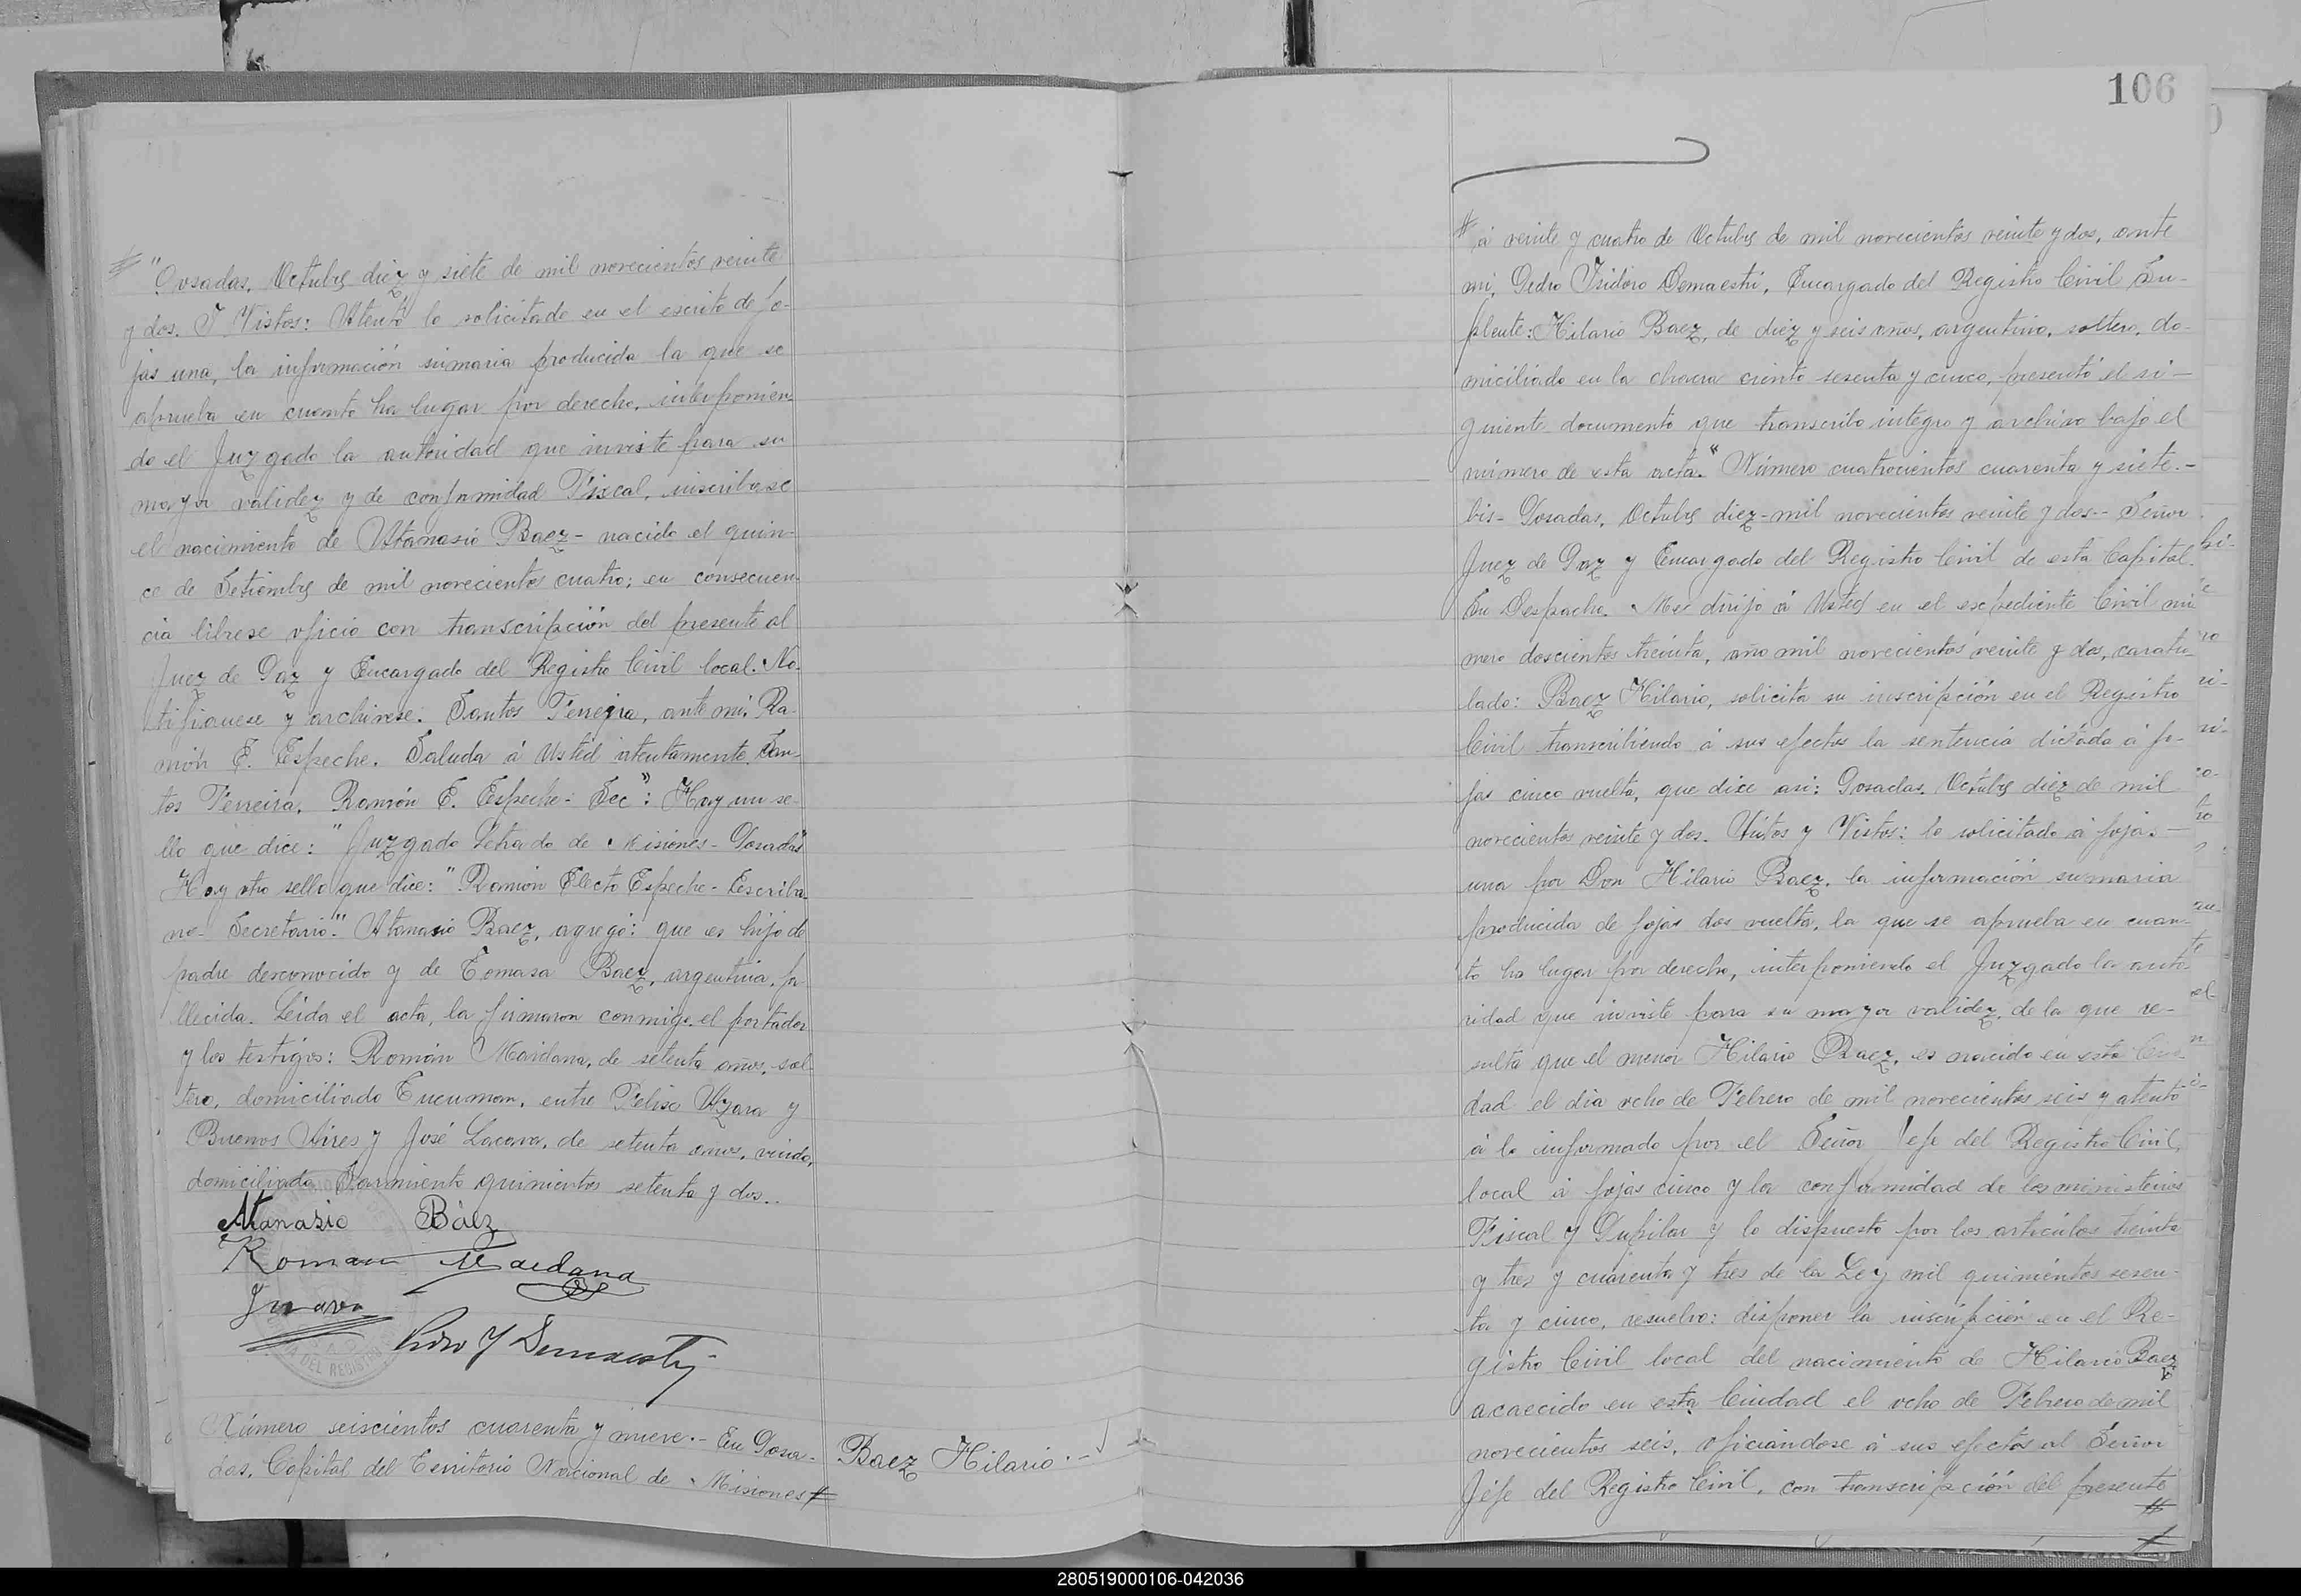 "Posadas, Octubre diez y siete de mil novecientos veinte
y dos. Y Vistos: Atento lo solicitado en el escrito de fo-
jas una, la información sumaria producida la que se
aprueba en cuanto ha lugar por derecho, interponien-
do el Juzgado la autoridad que inviste para su
mayor validez y de conformidad Fiscal, inscribase
el nacimiento de Atanasio Baez - nacido el quin-
ce de Setiembre de mil novecientos cuatro; en consecuen-
cia librese oficio con transcripción del presente al
Juez de Paz y Encargado del Registro Civil local. No-
tifiquese y archivese. Santos Ferreira, ante mi: Ra-
món E. Espeche. Saluda á Usted atentamente. San-
tos Ferreira. Ramón E. Espeche - Sec": Hay un se-
llo que dice: "Juzgado Letrado de Misiones - Posadas"
Hay otro sello que dice: "Ramón Electo Espeche - Escriba-
no - Secretario". Atanasio Baez, agregó: que es hijo de
padre desconocido y de Tomasa Baez, argentina, fa-
llecida. Leida el acta, la firmaron conmigo, el portador
y los testigos: Román Maidana, de setenta años, sol-
tero, domiciliado Tucuman, entre Felix Azara y
Buenos Aires y José Lacava, de setenta años, viudo,
domiciliado Sarmiento quinientos setenta y dos..
Atanasio Báez
Roman Maidana
DEL REGISTRO
Número seiscientos cuarenta y nueve.- En Posa-
das, Capital del Territorio Nacional de Misiones #
Baez Hilario.-
106
# á veinte y cuatro de Octubre de mil novecientos veinte y dos, ante
mi, Pedro Isidoro Demaestri, Encargado del Registro Civil Su-
plente: Hilario Baez, de diez y seis años, argentino, soltero, do-
miciliado en la chacra ciento sesenta y cinco, presentó el si-
guiente documento que transcribo integro y archivo bajo el
número de esta acta. "Número cuatrocientos cuarenta y siete.-
bis - Posadas, Octubre diez - mil novecientos veinte y dos - Señor
Juez de Paz y Encargado del Registro Civil de esta Capital.
Su Despacho. Me dirijo á Usted en el expediente Civil nú-
mero doscientos treinta, año mil novecientos veinte y dos, caratu-
lado: Baez Hilario, solicita su inscripción en el Registro
Civil transcribiendo á sus efectos la sentencia dictada á fo-
jas cinco vuelta, que dice asi: Posadas, Octubre diez de mil
novecientos veinte y dos. Autos y Vistos: lo solicitado á fojas
una por Don Hilario Baez, la información sumaria
producida de fojas dos vuelta, la que se aprueba en cuan-
to ha lugar por derecho, interponiendo el Juzgado la auto-
ridad que inviste para su mayor validez, de la que re-
sulta que el menor Hilario Baez, es nacido en esta Ciu-
dad el dia ocho de Febrero de mil novecientos seis y atento
á lo informado por el Señor Jefe del Registro Civil,
local á fojas cinco y la conformidad de los ministerios
Fiscal y Pupilar y lo dispuesto por los articulos treinta
y tres y cuarenta y tres de la Ley mil quinientos sesen-
ta y cinco, resuelvo: disponer la inscripción en el Re-
gistro Civil local del nacimiento de Hilario Baez
acaecido en esta Ciudad el ocho de Febrero de mil
novecientos seis, oficiándose á sus efectos al Señor
Jefe del Registro Civil, con transcripción del presente
#
280519000106-042036